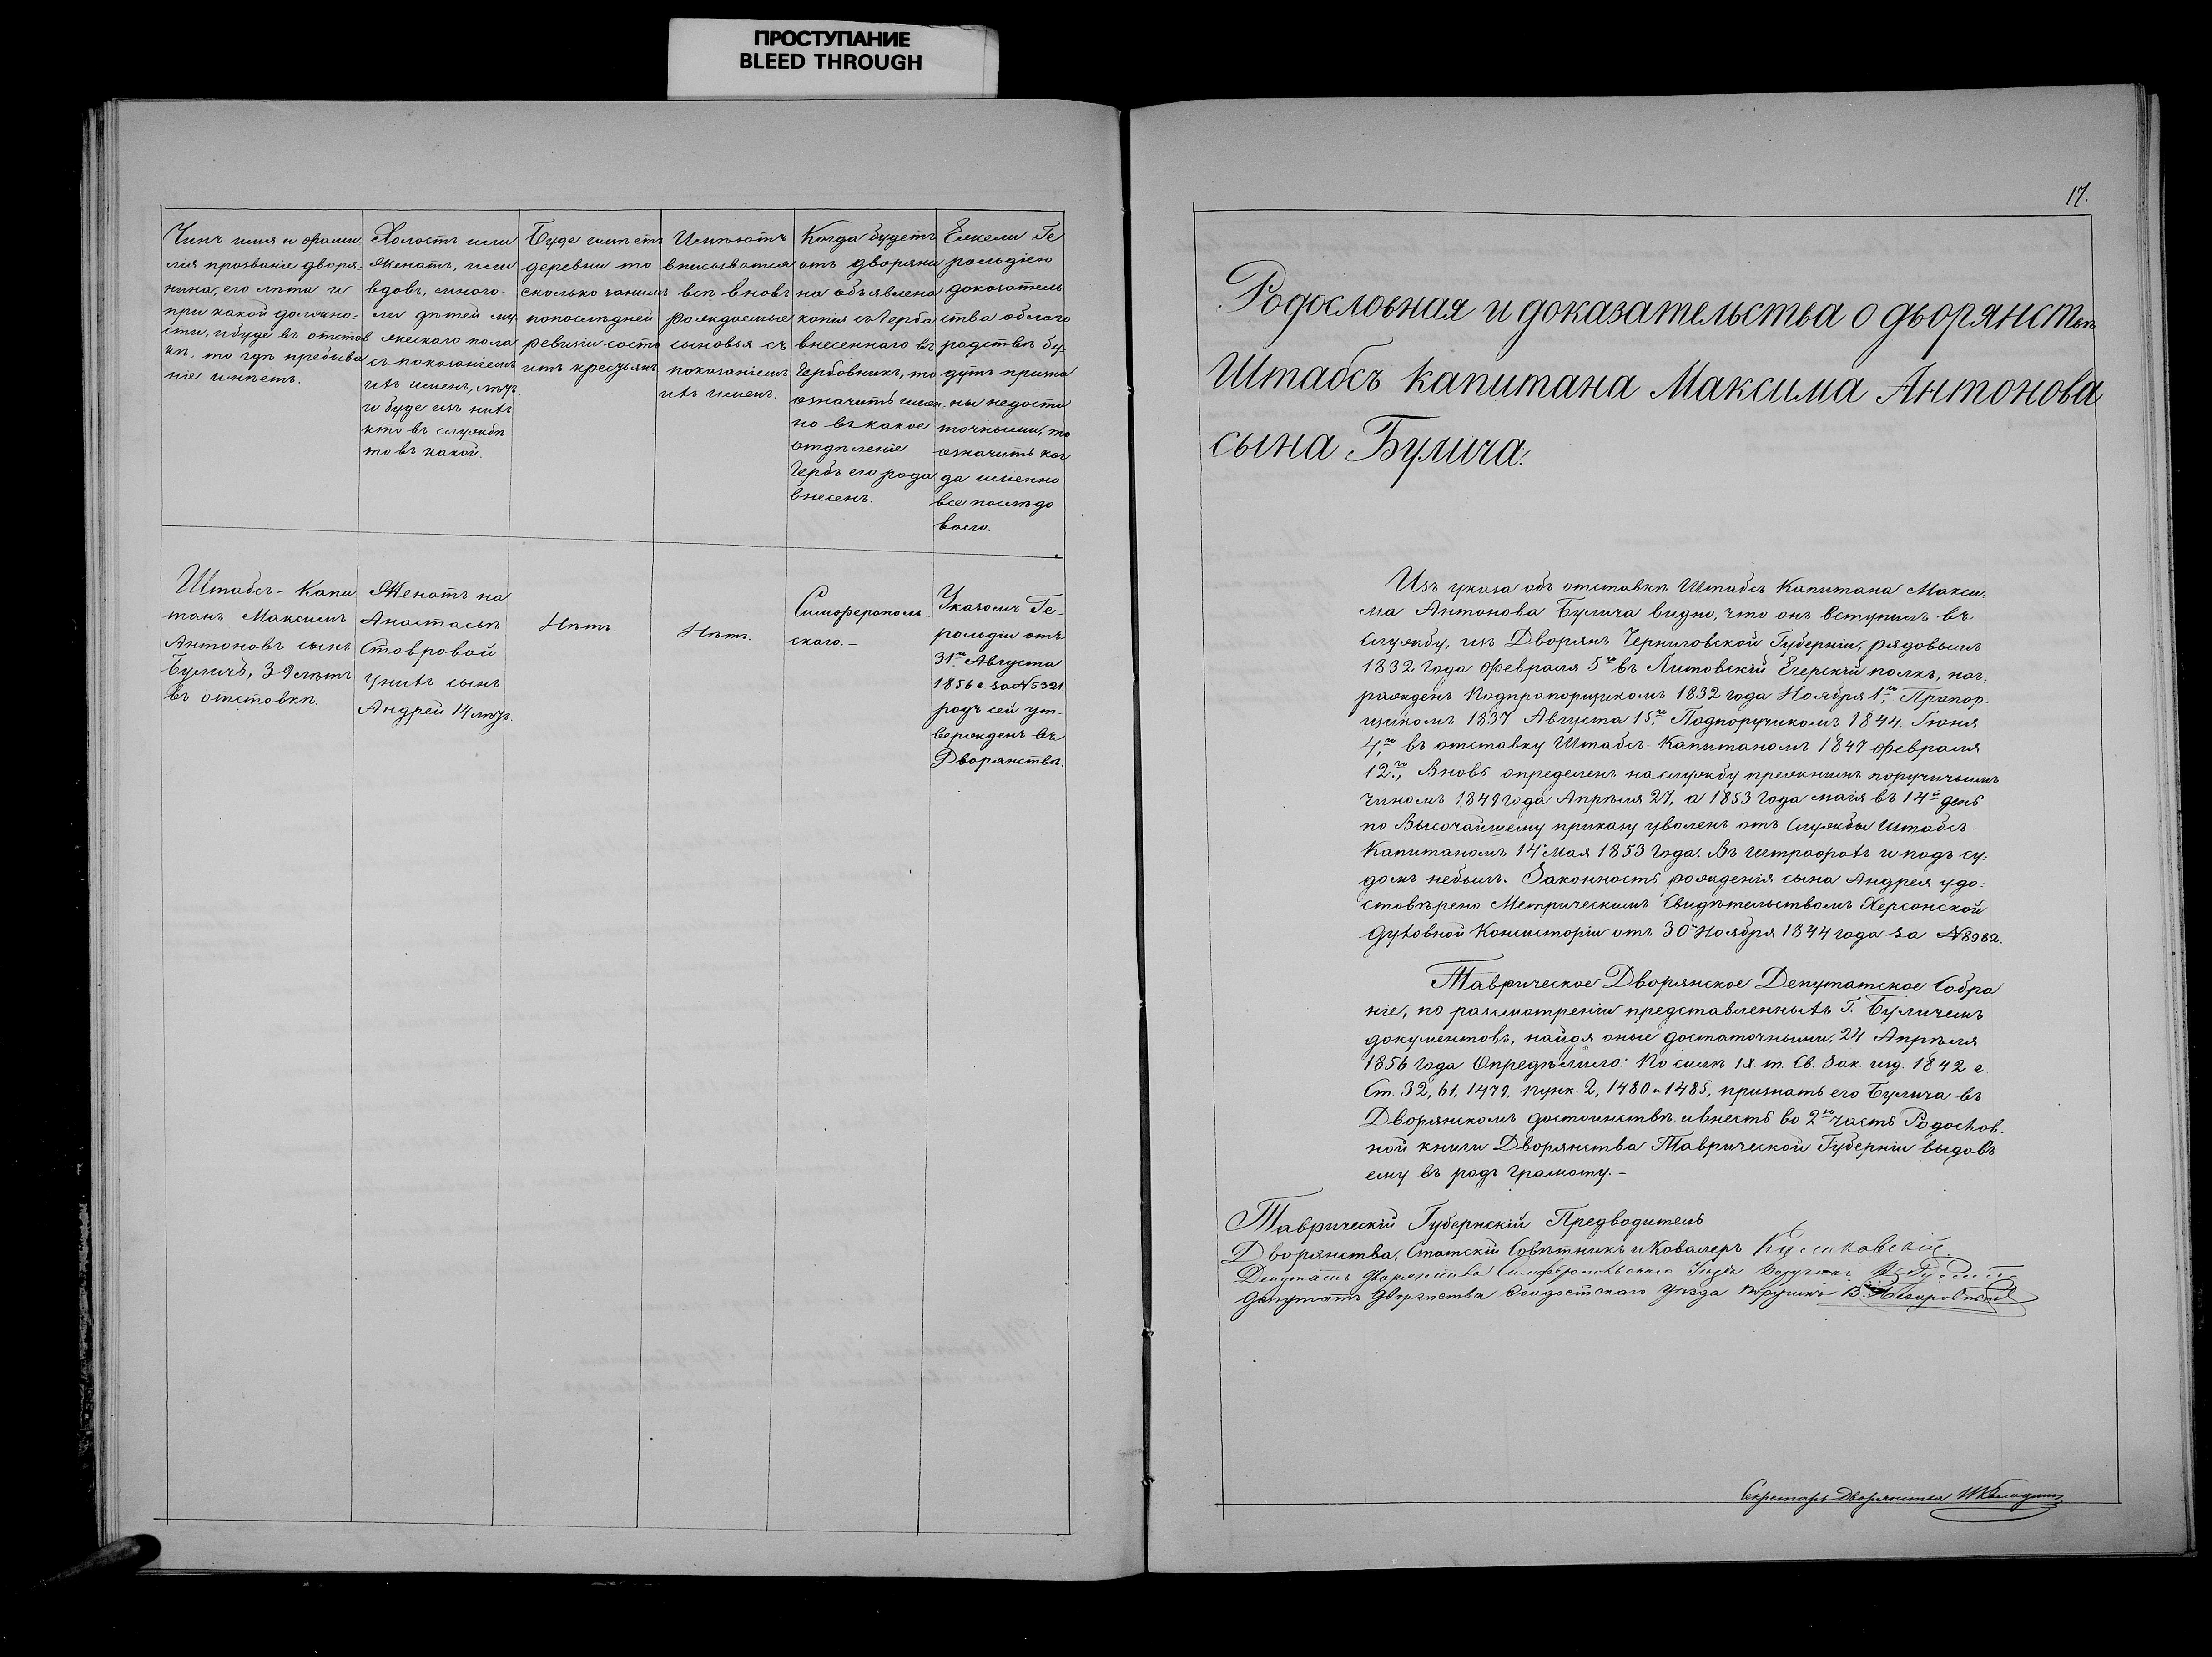 ПРОСТУПАНИЕ
BLEED THROUGH
Чинъ имя и фами-
лія прозваніе дворя-
нина, его лѣта и
при какой должно-
сти, и буде въ отстав
кѣ, то гдѣ пребыва
ніе имѣетъ.
Холостъ или
Женатъ, или
вдовъ, много-
ли дѣтей му-
жескаго пола
съ показаніемъ
ихъ именъ, лѣтъ.
и буде изъ нихъ
кто въ службѣ
то въ какой.
Буде имѣетъ
деревни то
сколько за нимъ
по послѣдней
ревизіи состо
итъ крестьянъ
Имѣютъ
вписыватся
всѣ вновь
рождаемые
сыновья съ
показаніемъ
ихъ именъ.
Когда будетъ
отъ дворяни
на объявлена
копія съ Герба
внесеннаго въ
Гербовникъ, то
означить имен
но въ какое
отдѣленіе
Гербъ его рода
внесенъ.
Ежели Ге
рольдіею
доказатель
ства о благо
родствѣ бу-
дутъ призна
ны недоста
точными, то
означить ког
да именно
все послѣдо
вало.
Штабсъ-Капи
танъ Максимъ
Антоновъ сынъ
Буличъ, 39 лѣтъ
въ отставкѣ.
Женатъ на
Анастасьѣ
Ставровой
у нихъ сынъ
Андрей 14 лѣтъ.
Нѣтъ.
Нѣтъ.
Симферополь-
скаго.-
Указомъ Ге-
рольдіи отъ
31го Августа
1856 г за № 5321
родъ сей ут-
вержденъ въ
Дворянствѣ.
17.
Родословная и доказательства о дворянствѣ
Штабсъ капитана Максима Антонова
сына Булича.
Изъ указа объ отставкѣ Штабсъ Капитана Макси-
ма Антонова Булича видно, что онъ вступилъ въ
службу, изъ Дворянъ Черниговской Губерніи, рядовымъ
1832 года февраля 5го въ Литовскій Егерскій полкъ, наг-
ражденъ Подпрапорщикомъ 1832 года Ноября 1го, Прапор-
щикомъ 1837 Августа 15го, Подпоручикомъ 1844. Іюня
4го, въ отставку Штабсъ-Капитаномъ 1847 февраля
12го, Вновь опредѣленъ на службу прежнимъ поручичьимъ
чиномъ 1849 года Апрѣля 27, а 1853 года маія въ 14й день
по Высочайшему приказу уволенъ отъ службы Штабсъ-
Капитаномъ 14 Мая 1853 года. Въ штрафахъ и подъ су-
домъ небылъ. Законность рожденія сына Андрея удо-
стовѣрено Метрическимъ Свидѣтельствомъ Херсонской
Духовной Консисторіи отъ 30го Ноября 1844 года за № 8982.
Таврическое Дворянское Депутатское Собра
ніе, по разсмотреніи представленныхъ Г. Буличемъ
документовъ, найдя оные достаточными, 24 Апрѣля
1856 года Опредѣлило: По силѣ IX. т. Св. Зак. изд. 1842 г.
Ст. 32, 61, 1479, пунк. 2, 1480 и 1485, признать его Булича въ
Дворянскомъ достоинствѣ и внесть во 2ю часть Родослов-
ной книги Дворянства Таврической Губерніи выдавъ
ему въ родъ грамоту.-
Таврическій Губернскій Предводитель
Дворянства, Статскій Совѣтникъ и Кавалеръ
Депутатъ Дворянства Симферопольскаго Уѣзда Поручикъ
Депутатъ Дворянства Уѣзда Поручикъ В.
Секретарь Дворянства